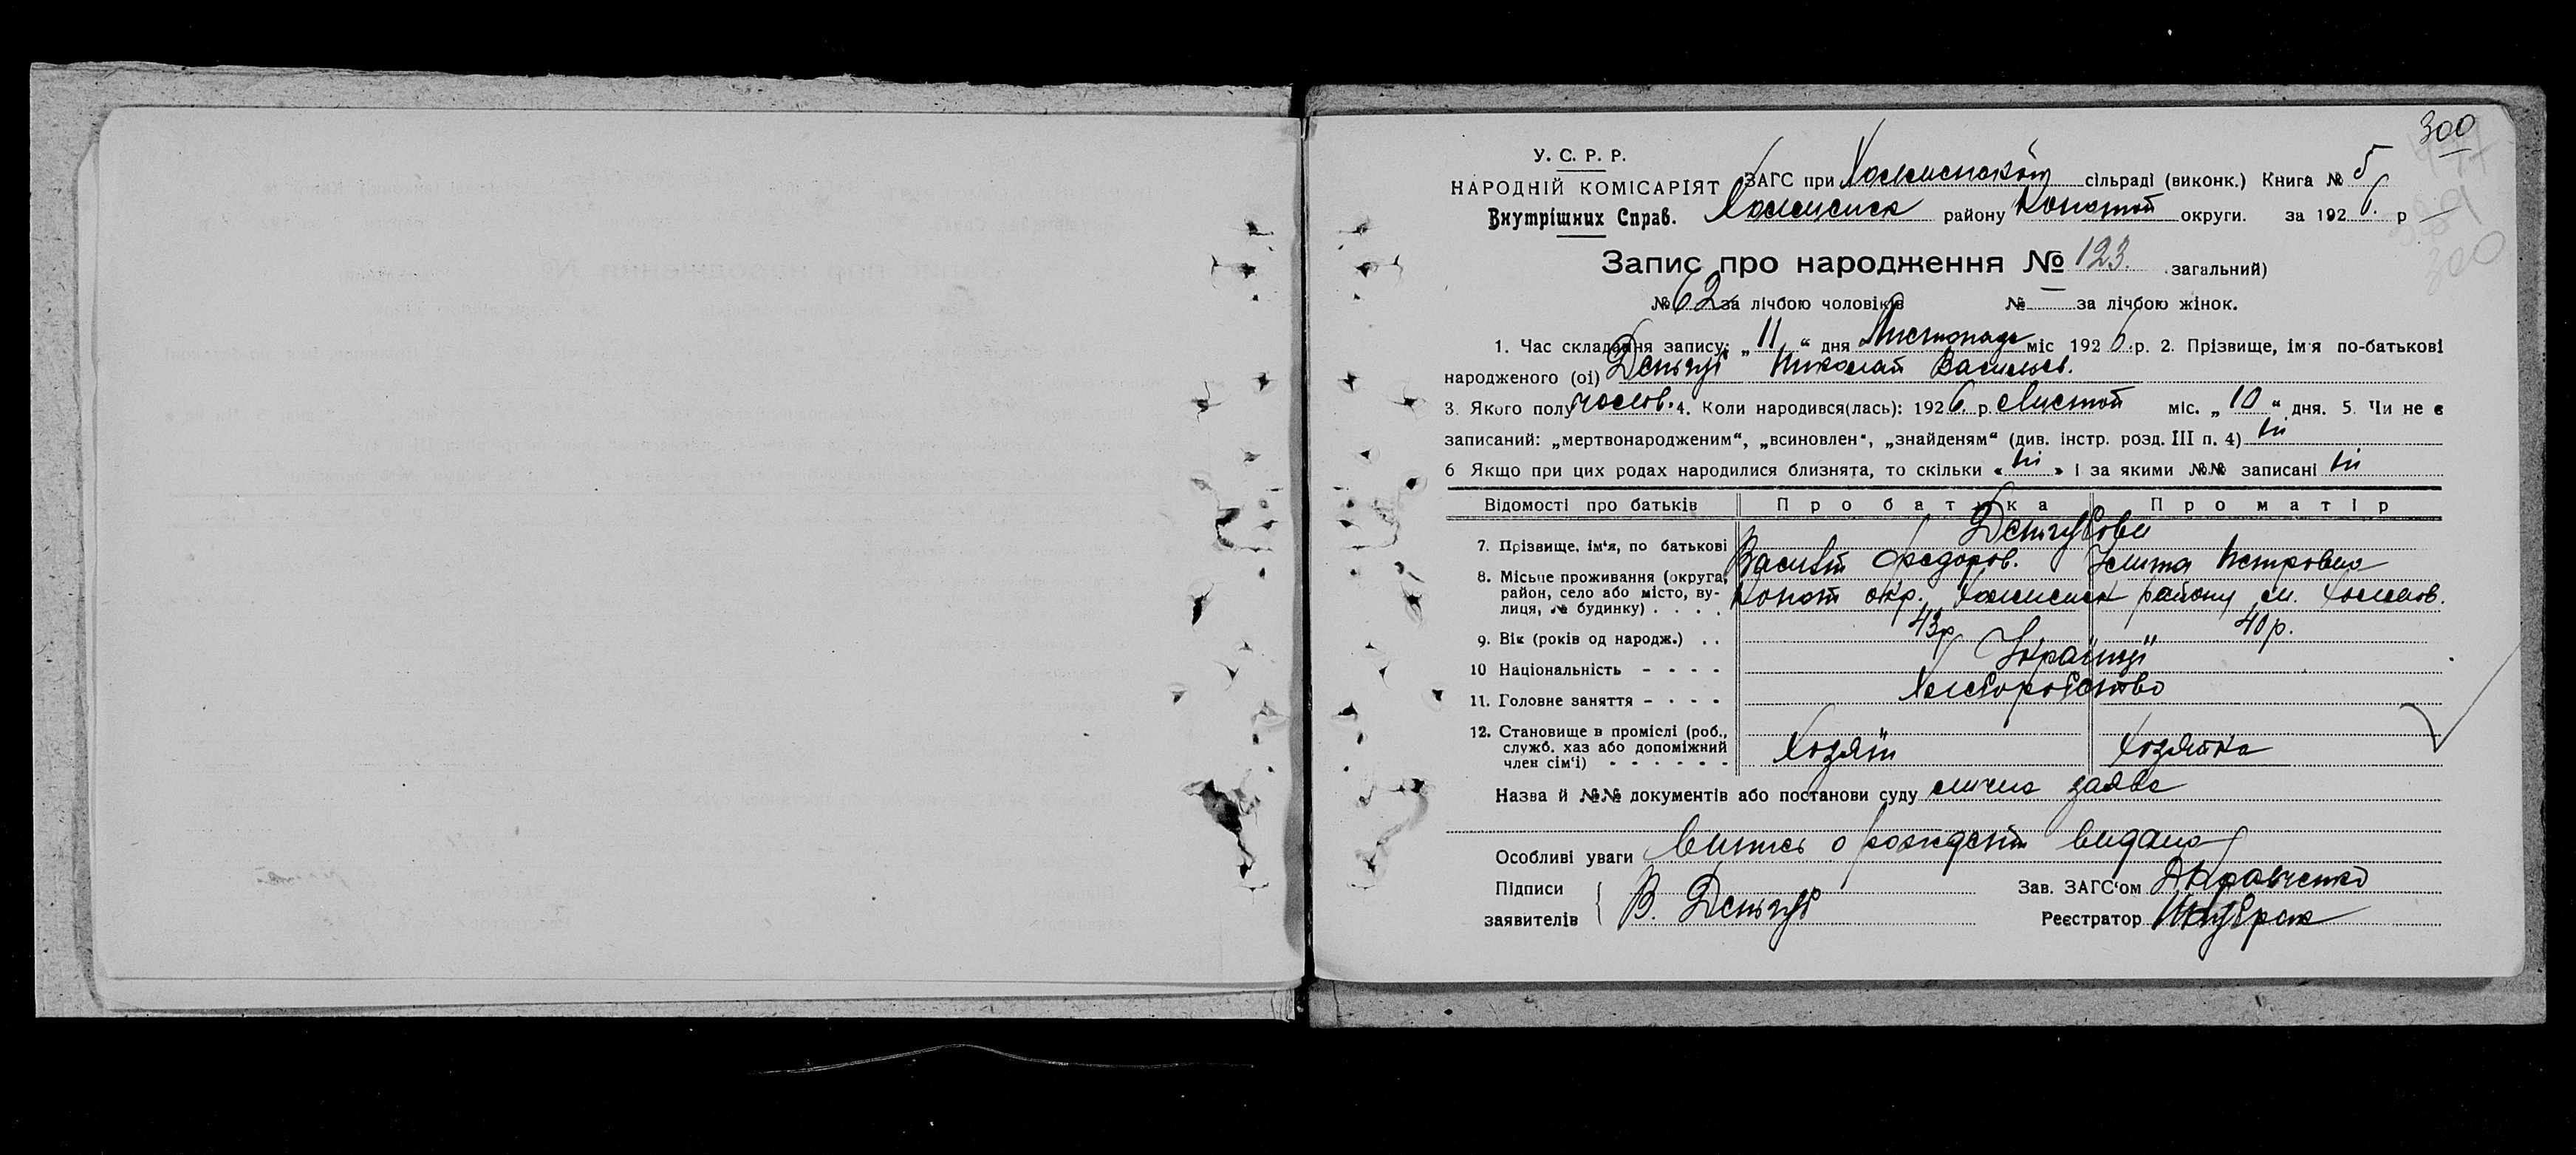 300
У. С. Р. Р.
НАРОДНІЙ КОМІСАРІЯТ
Внутрішних Справ.
ЗАГС при сільраді (виконк.) Книга № 5
району Конотоп округи. за 1926 р
Запис про народження № 123. загальний)
№ 62 за лічбою чоловіків № — за лічбою жінок.
1. Час складання запису: „11“ дня Листопада міс 1926 р. 2. Прізвище, ім'я по-батькові
народженого (ої) Николай Васильев.
3. Якого полу чолов. 4. Коли народився(лась): 1926 р. Листоп міс. „10“ дня. 5. Чи не є
записаний: „мертвонародженим“, „всиновлен“, „знайденям“ (див. інстр. розд. III п. 4) ні
6 Якщо при цих родах народилися близнята, то скільки «ні» і за якими №№ записані ні
Відомості про батьків Про батька Про матір
7. Прізвище, ім'я, по батькові
Василь Федоров. Петровна
8. Місьце проживання (округа, район, село або місто, ву-
лиця, № будинку) . . . . Конот окр. району м.
9. Вік (років од народж.) . . 43р 40р.
10 Національність - - - - Українці
11. Головне заняття - - - - Хлеборобство
12. Становище в промислі (роб.,
служб. хаз або допоміжний
член сім'ї) - - - - - - Хозяїн Хозяйка
Назва й №№ документів або постанови суду личная заява
Особливі уваги Випись о рожденіи видана
Підписи
заявителів В.
Зав. ЗАГС'ом Кравченко
Реєстратор